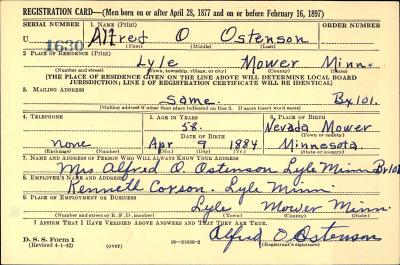 REGISTRATION CARD—(Men born on or after April 28, 1877 and on or before February 16, 1897)
SERIAL NUMBER 1. NAME (Print) ORDER NUMBER
U 1630 Alfred O Ostenson
(First) (Middle) (Last)
2. PLACE OF RESIDENCE (Print)
Lyle Mower Minn.
(Number and street) (Town, township, village, or city) (County) (State)
[THE PLACE OF RESIDENCE GIVEN ON THE LINE ABOVE WILL DETERMINE LOCAL BOARD
JURISDICTION; LINE 2 OF REGISTRATION CERTIFICATE WILL BE IDENTICAL]
3. MAILING ADDRESS
Same. Bx 101.
[Mailing address if other than place indicated on line 2. If same insert word same]
4. TELEPHONE 5. AGE IN YEARS 6. PLACE OF BIRTH
58. Nevada Mower
DATE OF BIRTH (Town or county)
None Apr 9 1884 Minnesota.
(Exchange) (Number) (Mo.) (Day) (Yr.) (State or country)
7. NAME AND ADDRESS OF PERSON WHO WILL ALWAYS KNOW YOUR ADDRESS
Mrs Alfred O. Ostenson Lyle Minn Bx 101
8. EMPLOYER'S NAME AND ADDRESS
Kenneth Corson. Lyle Minn.
9. PLACE OF EMPLOYMENT OR BUSINESS
Lyle Mower Minn.
(Number and street or R. F. D. number) (Town) (County) (State)
I AFFIRM THAT I HAVE VERIFIED ABOVE ANSWERS AND THAT THEY ARE TRUE.
D. S. S. Form 1 Alfred O Ostenson
(Revised 4-1-42) (over) 16—21630-2 (Registrant's signature)